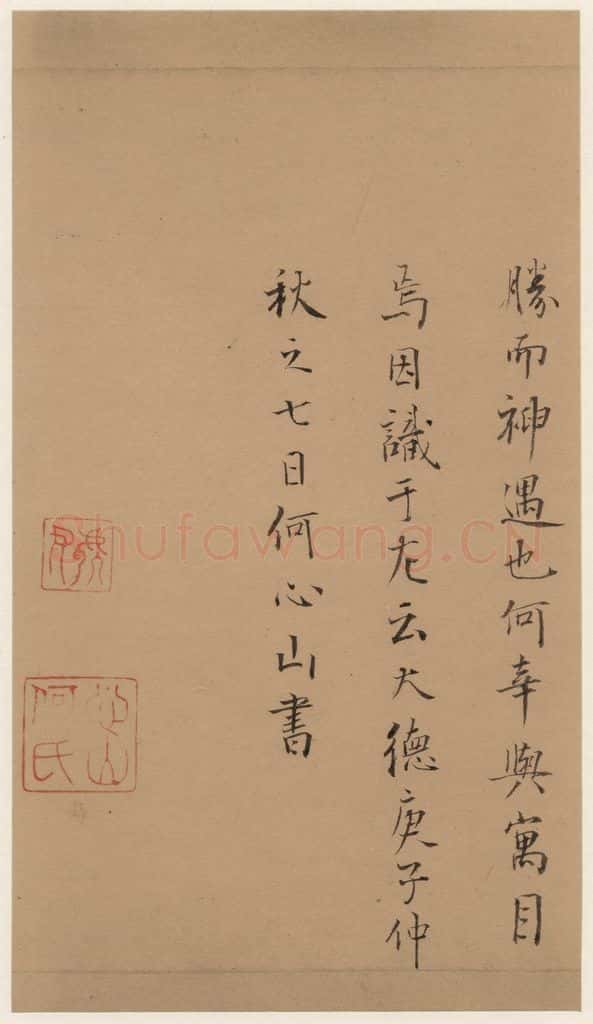 勝而神遇也何幸與寓目
焉因識于左云大德庚子仲
秋之七日何心山書
心山
何氏
Shufawang.CN